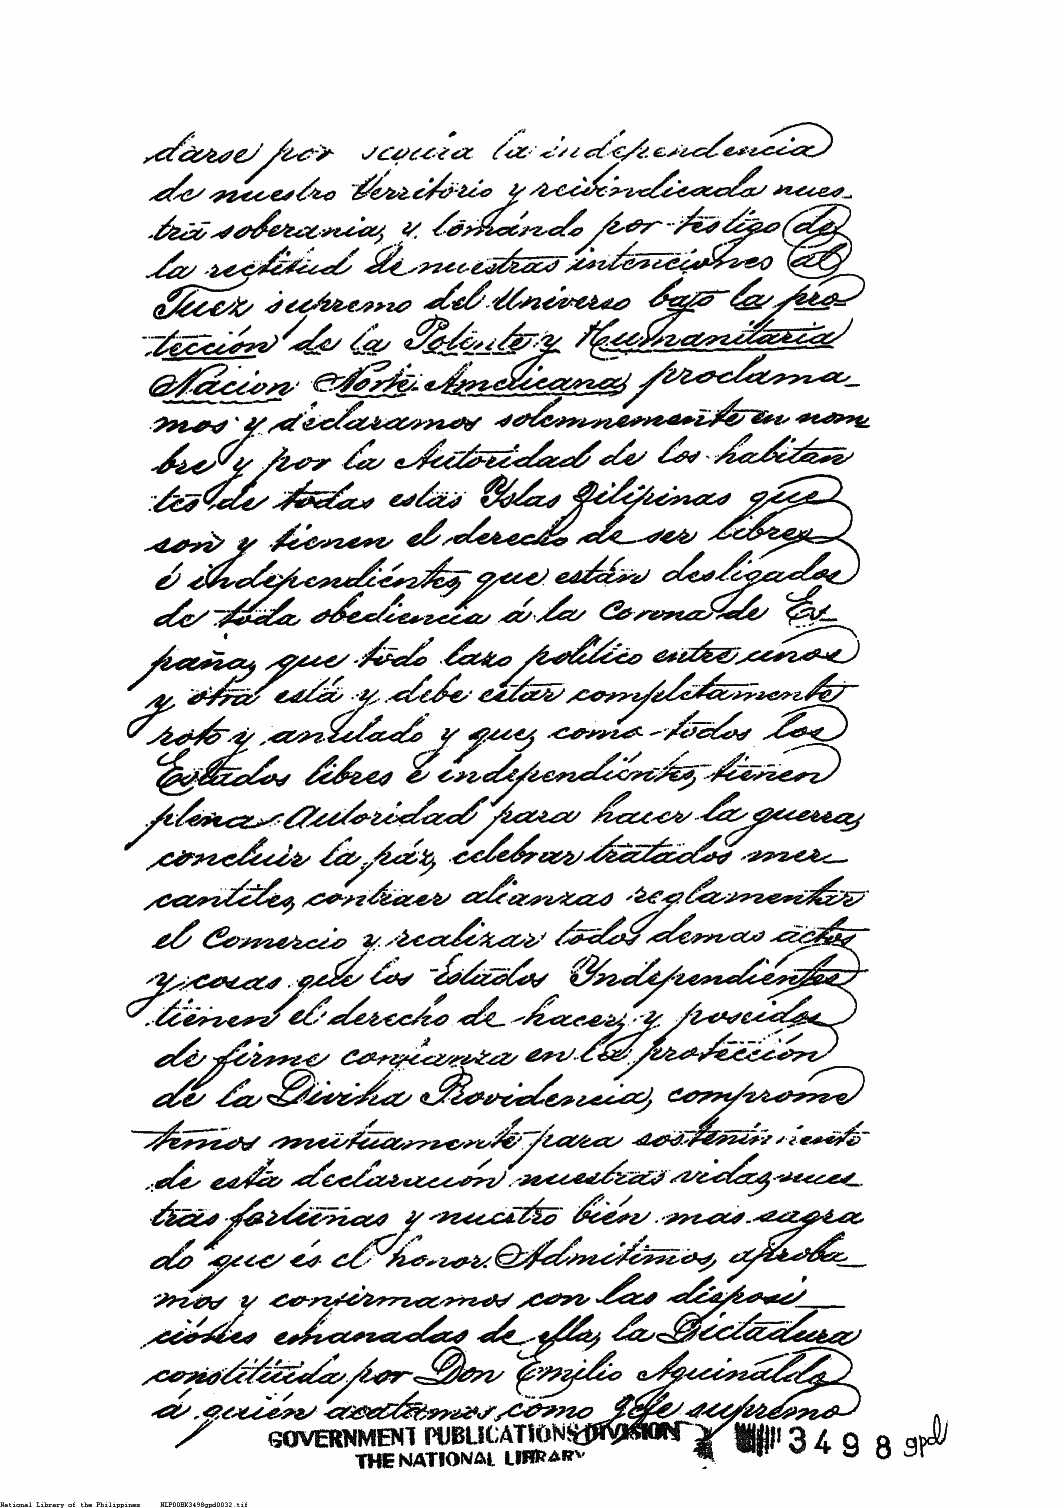 darse por segura la independencia
de nuestro territorio y reivindicada nues-
tra soberania, y tomándo por testigo de
la rectitud de nuestras intenciones al
Juez supremo del Universo bajo la pro
tección de la Potente y Humanitaria
Nacion Norte Americana, proclama-
mos y declaramos solemnemente en nom
bre y por la Autoridad de los habitan
tes de todas estas Yslas Filipinas que
son y tienen el derecho de ser libres
é independiéntes, que están desligados
de toda obediencia á la Corona de Es-
paña, que todo lazo político entre unos
y otra está y debe estar completamente
roto y anulado y que, como todos los
Estados libres é independiéntes, tienen
plena Autoridad para hacer la guerra,
concluir la páz, celebrar tratados mer-
cantiles, contraer alianzas reglamentar
el Comercio y realizar todos demas actos
y cosas que los Estados Yndependientes
tienen el derecho de hacer, y poseidos
de firme confianza en la protección
de la Divina Providencia, comprome
temos mutuamente para sostenimiento
de esta declaración nuestras vidas, nues
tras fortunas y nuestro bién mas sagra
do que és el honor. Admitimos, aproba-
mos y confirmamos con las disposi-
ciónes emanadas de ella, la Dictadura
constituida por Don Emilio Aguinaldo
á quién acatamos como Gefe supremo
GOVERNMENT PUBLICATIONS DIVISION
THE NATIONAL LIBRARY
3498 gpd
National Library of the Philippines NLP00BK3498gpd0032.tif